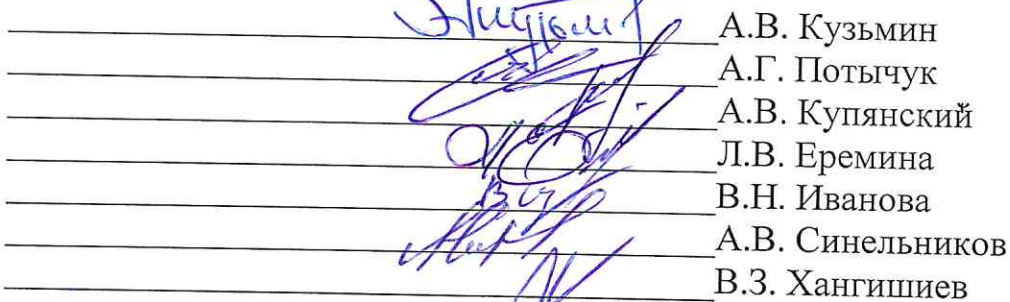 А.В. Кузьмин
А.Г. Потычук
А.В. Купянский
Л.В. Еремина
В.Н. Иванова
А.В. Синельников
В.З. Хангишиев